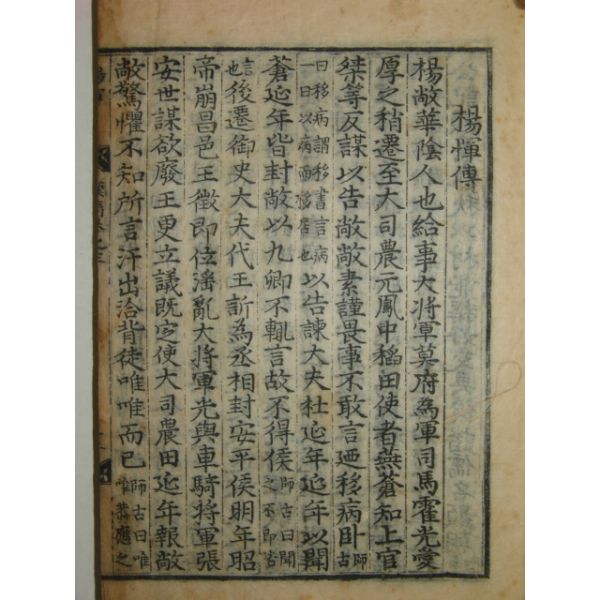 楊惲傳
楊敞華陰人也給事大將軍莫府為軍司馬霍光愛
厚之稍遷至大司農元鳳中稻田使者燕蒼知上官
桀等反謀以告敞敞素謹畏事不敢言廼移病卧師古
曰移病謂移書言病一曰以病而移居也以告諫大夫杜延年延年以聞
蒼延年皆封敞以九卿不輒言故不得侯師古曰聞之不即告
言也後遷御史大夫代王訢為丞相封安平侯明年昭
帝崩昌邑王徵即位淫亂大將軍光與車騎將軍張
安世謀欲廢王更立議既定使大司農田延年報敞
敞驚懼不知所言汗出洽背徒唯唯而已師古曰唯唯恭應之